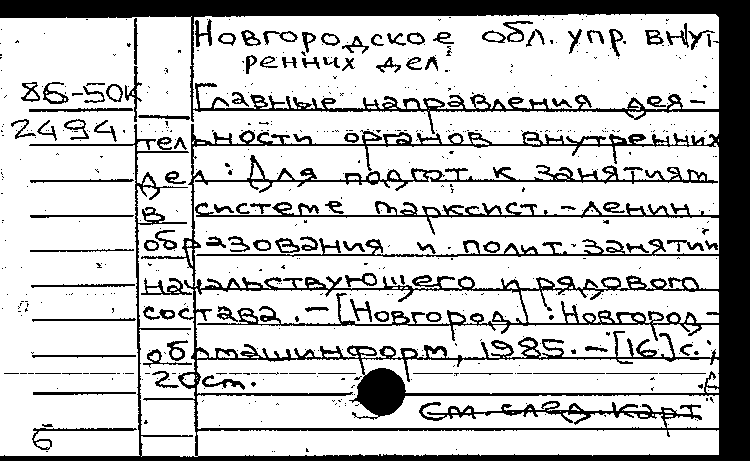 Новгородское обл. упр. внут-
ренних дел.
86-50К
Главные направления дея-
2494
тельности органов внутренних
дел : Для подгот. к занятиям
в системе марксист.-ленин.
образования и полит. занятий
начальствующего и рядового
состава. — [Новгород] : Новгород-
облмашинформ, 1985. — [16] с. ;
20 см.
См. след. карт
6